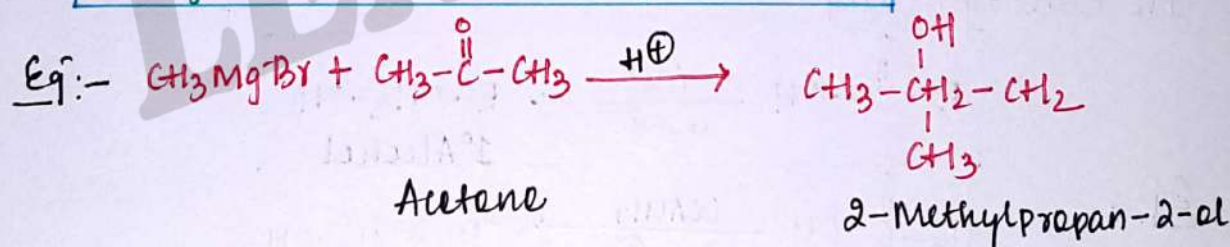 O OH
Eg:- CH3MgBr + CH3-C-CH3 H⊕ → CH3-CH2-CH2
CH3
Acetone 2-Methylpropan-2-ol